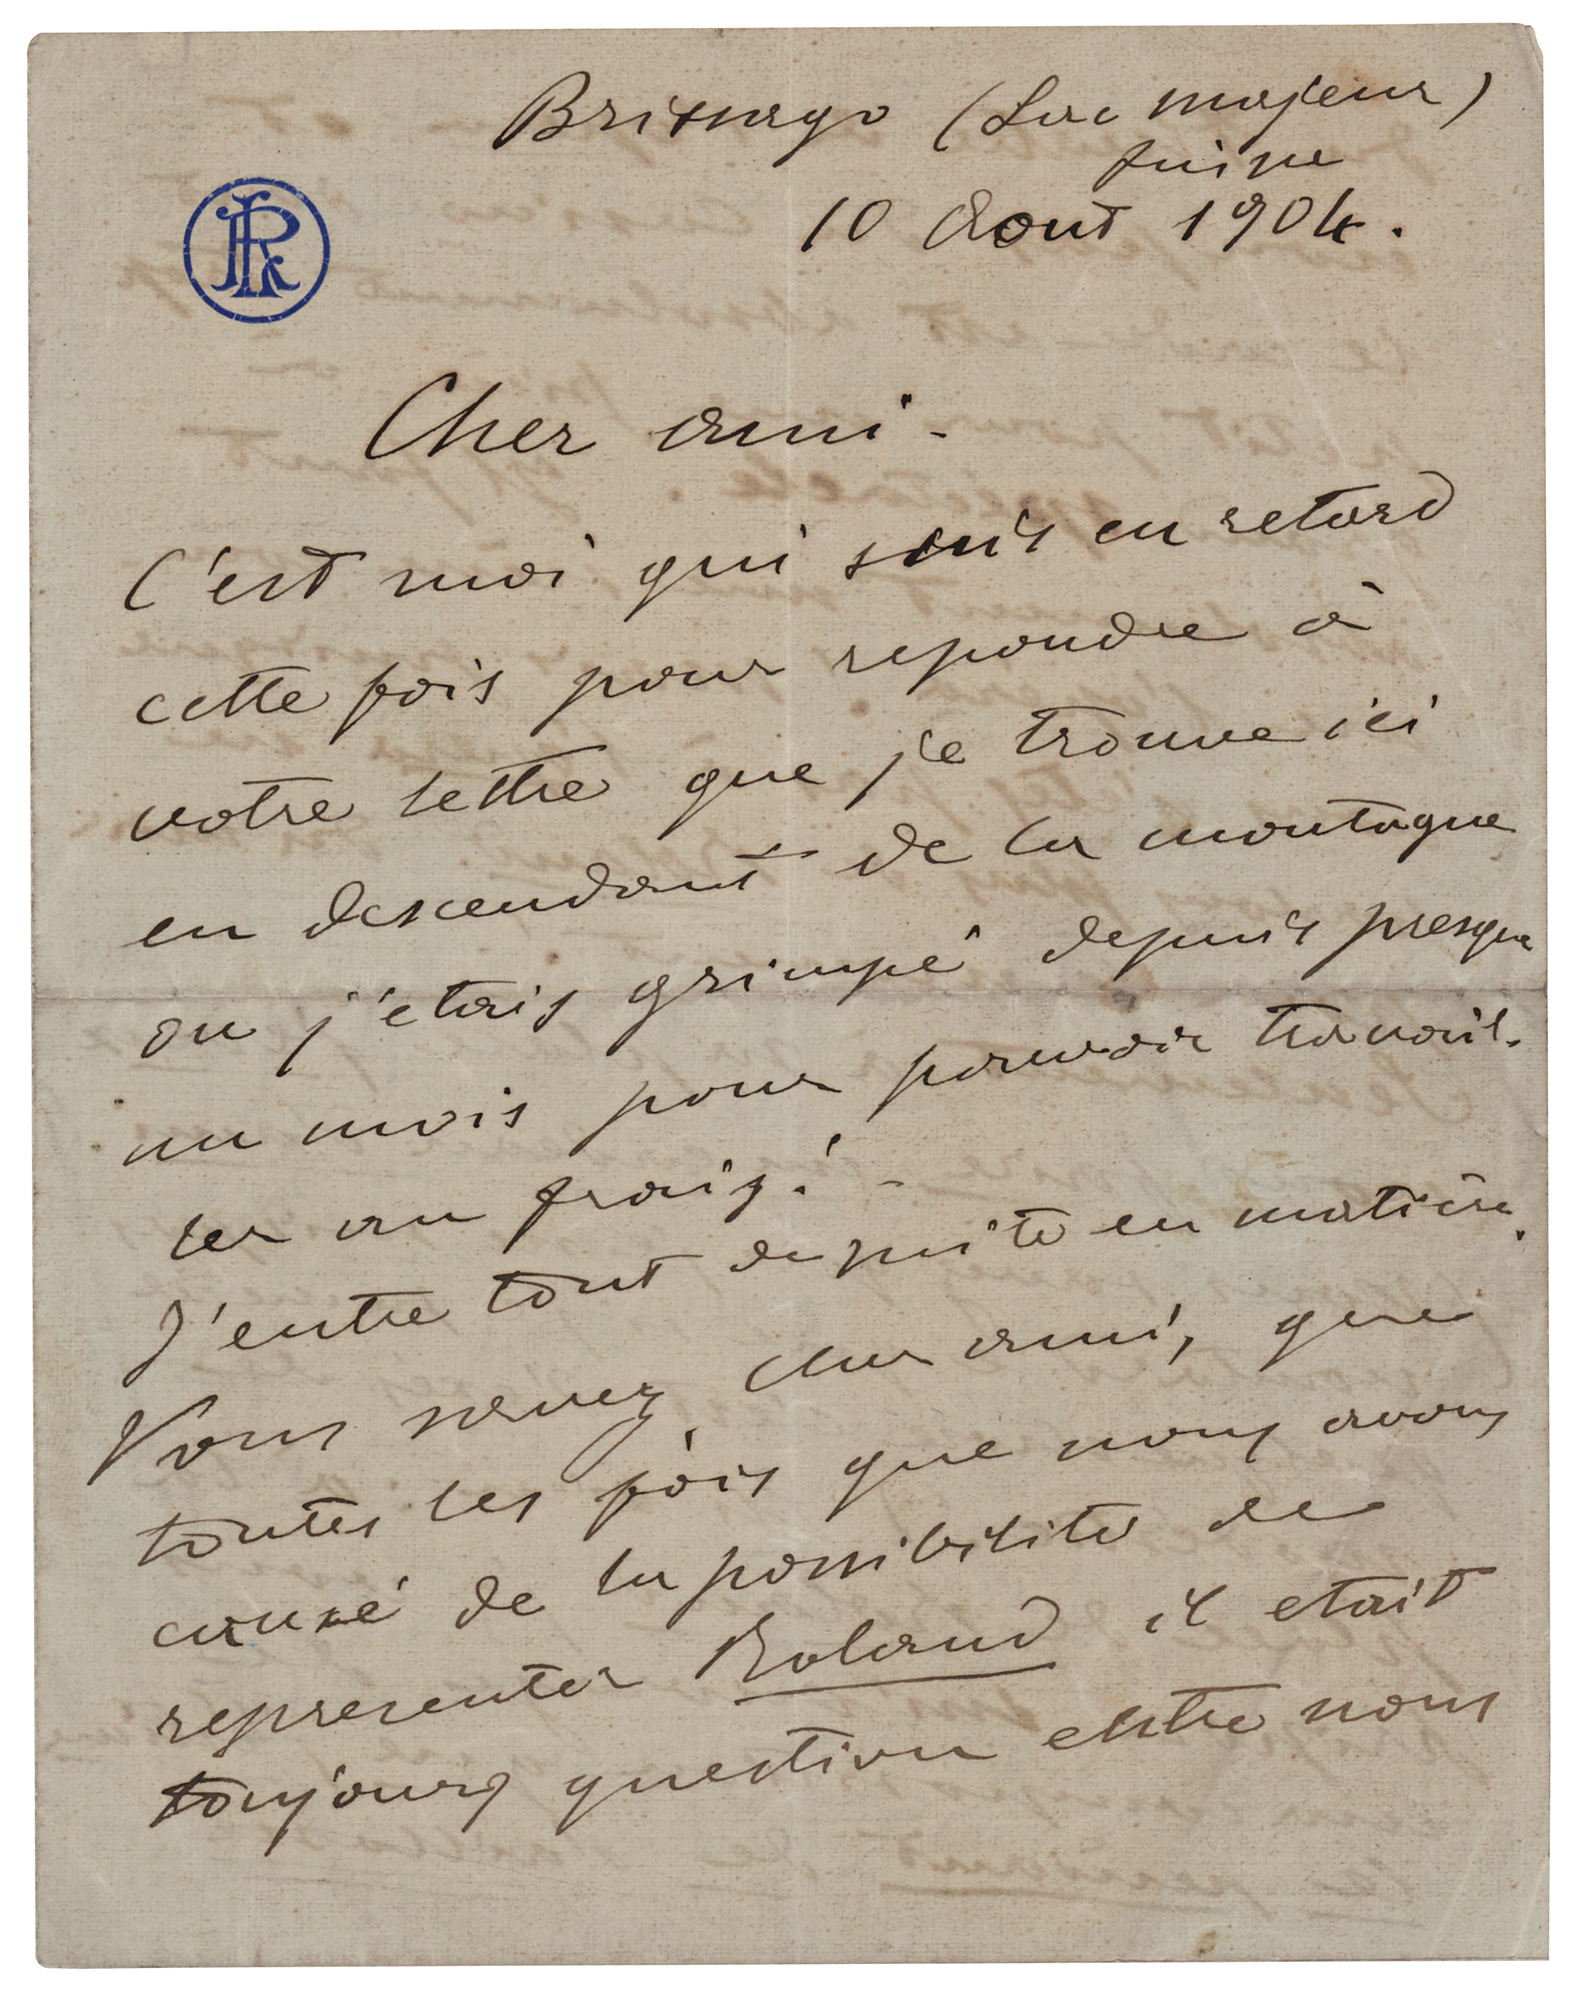 Brissago (Lac majeur)
suisse
10 Aout 1904.
RL
Cher ami -
C'est moi qui suis en retard
cette fois pour repondre à
votre lettre que je trouve ici
en descendant de la montagne
ou j'etais grimpé depuis presque
un mois pour pouvoir travail-
ler au frais! -
J'entre tout de suite en matière.
Vous savez, cher ami, que
toutes les fois que nous avons
causé de la possibilité de
representer Roland il etait
toujours question entre nous